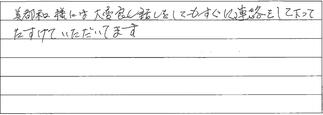 様には大変良く話しをしてもすぐに連絡をして下って
たすけていただいてます